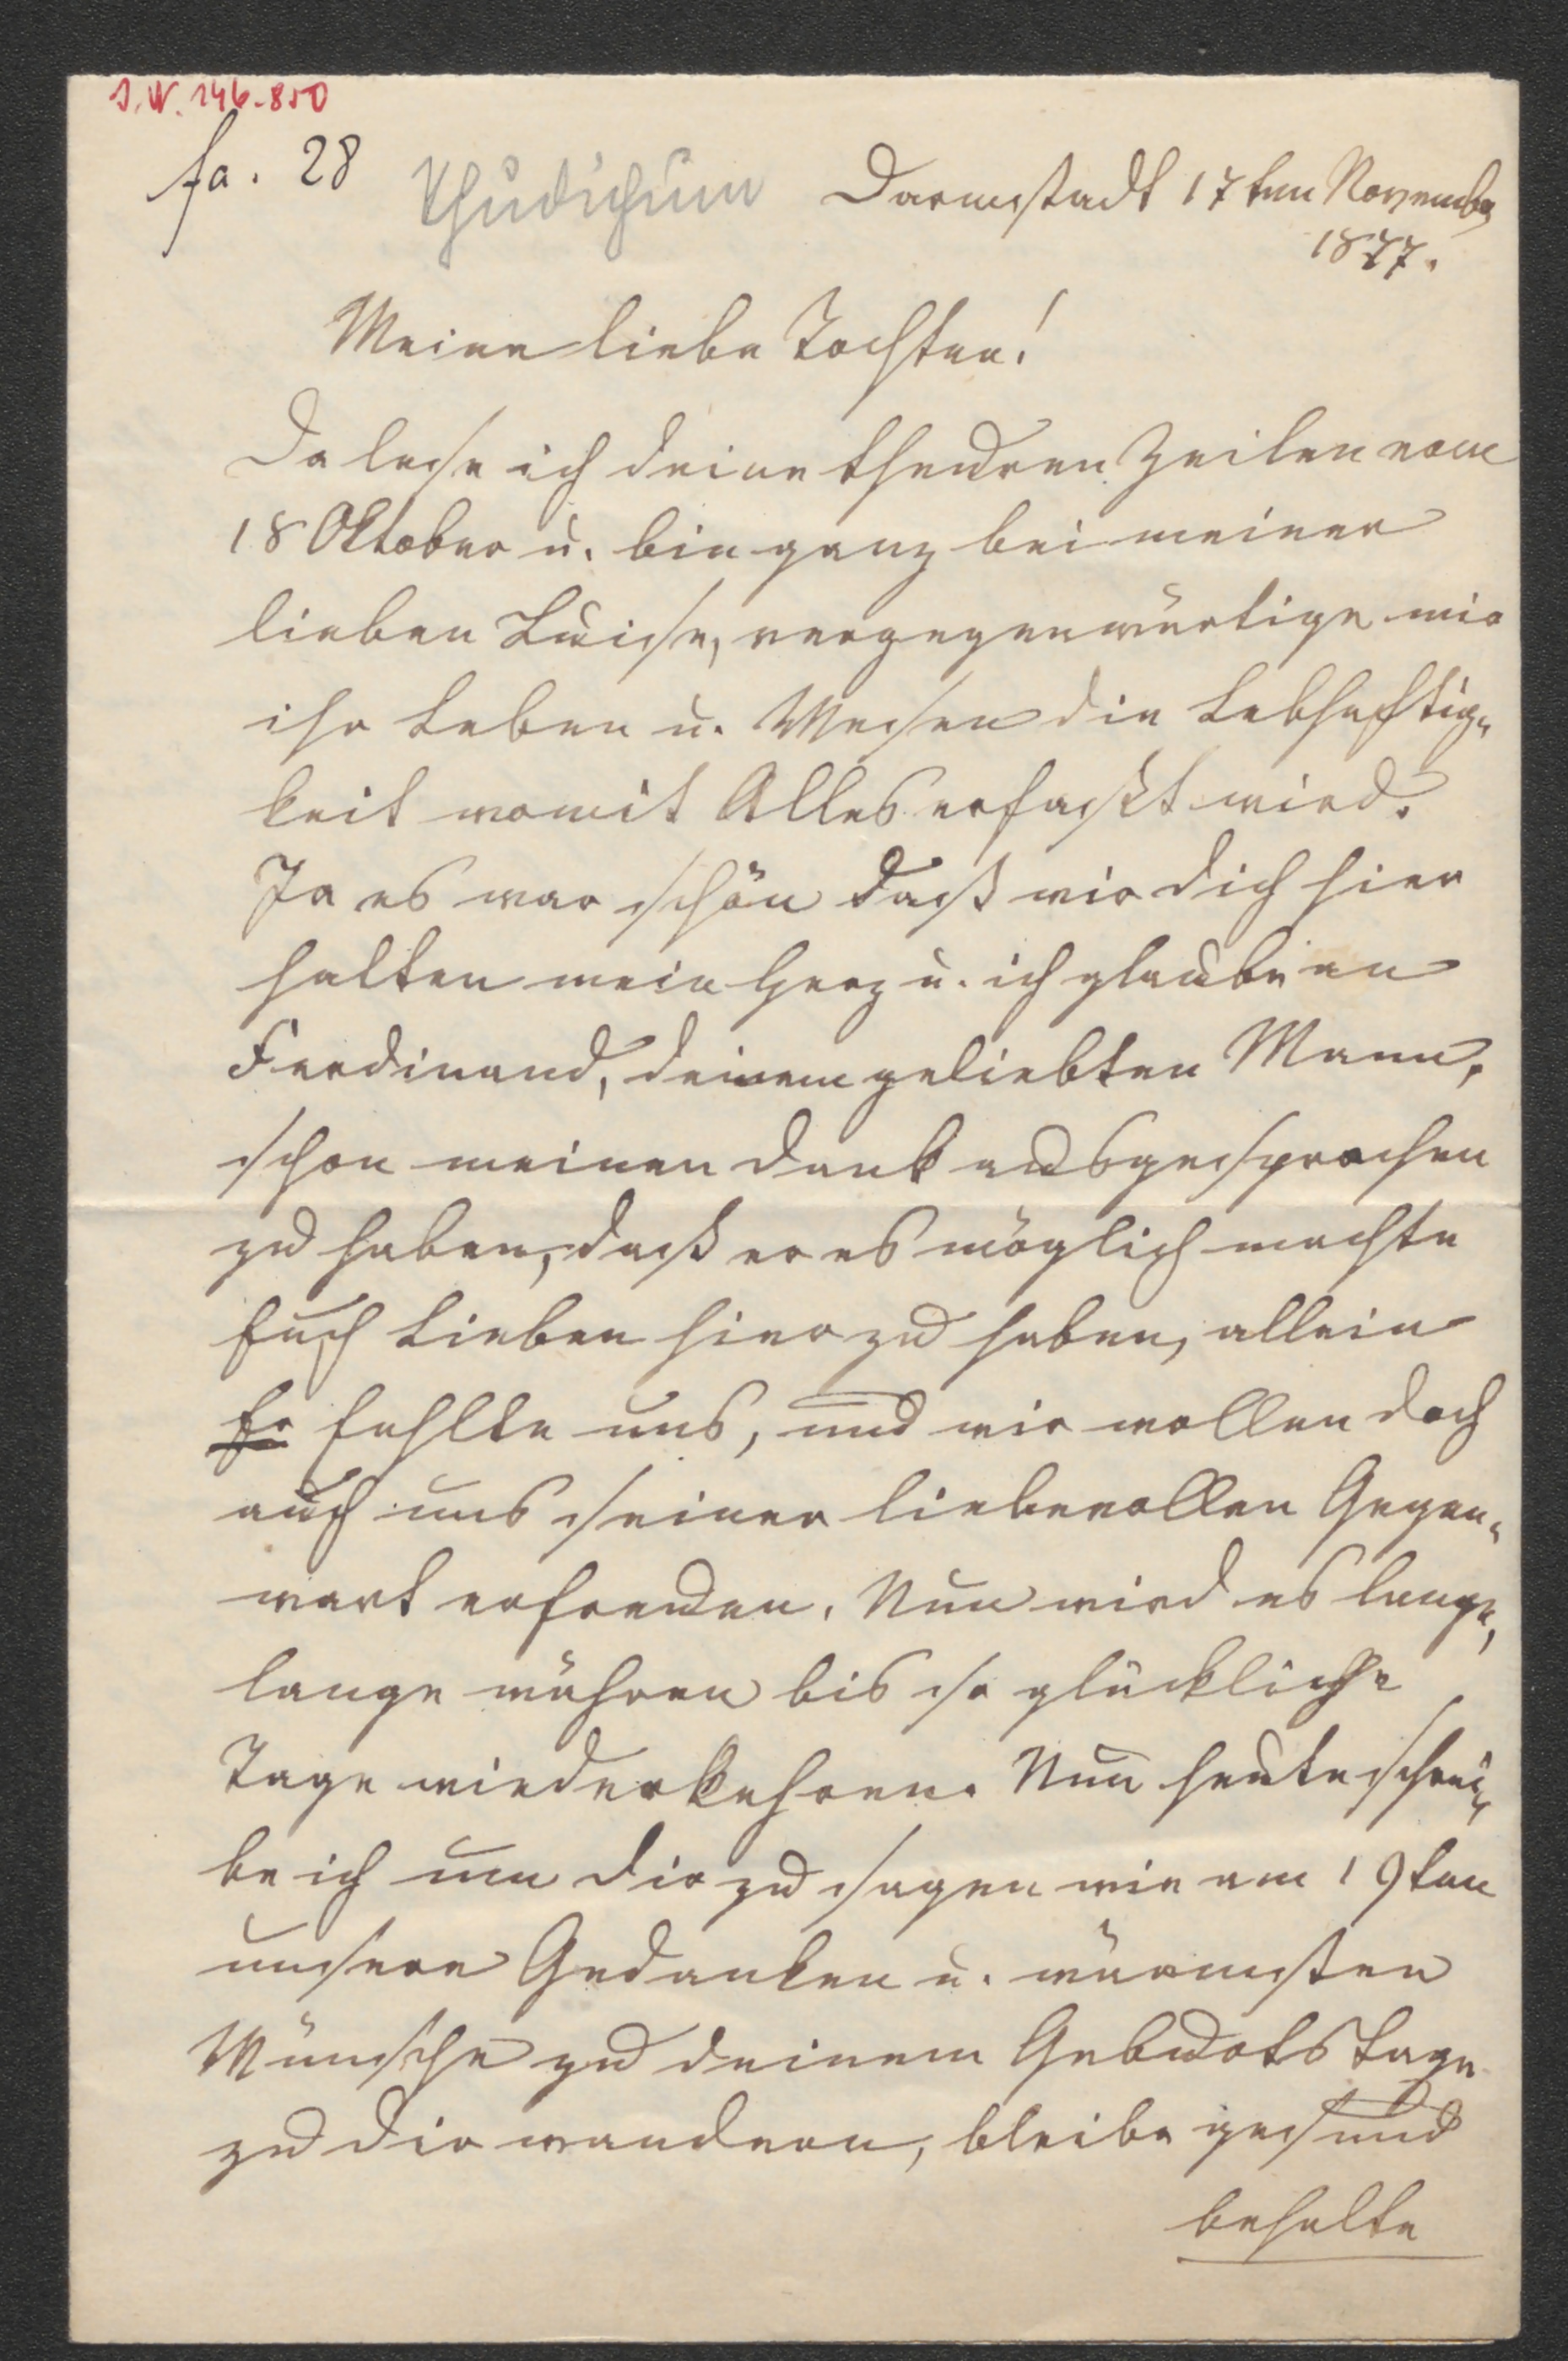 J. N. 146.850
fa. 28
Thudichum
Darmstadt 17ten November
1877.
Meine liebe Tochter!
Da lese ich deine theuren Zeilen vom
18 Oktober u. bin ganz bei meiner
lieben Luise, vergegenwärtige mir
ihr Leben u. Wesen die Lebhaftig-
keit womit Alles erfaßt wird.
Ja es war schön daß wir dich hier
hatten mein Herz u. ich glaube an
Ferdinand, deinem geliebten Mann,
schon meinen Dank ausgesprochen
zu haben, daß er es möglich machte
Euch Lieben hier zu haben, allein
Er fehlte uns, und wir wollen doch
auch uns seiner liebevollen Gegen-
wart erfreuen. Nun wird es lange,
lange währen bis so glückliche
Tage wiederkehren. Nun heute schrei-
be ich um dir zu sagen wie am 19ten
unsere Gedanken u. wärmsten
Wünsche zu deinem Geburtstage
zu dir wandern, bleibe gesund
behalte